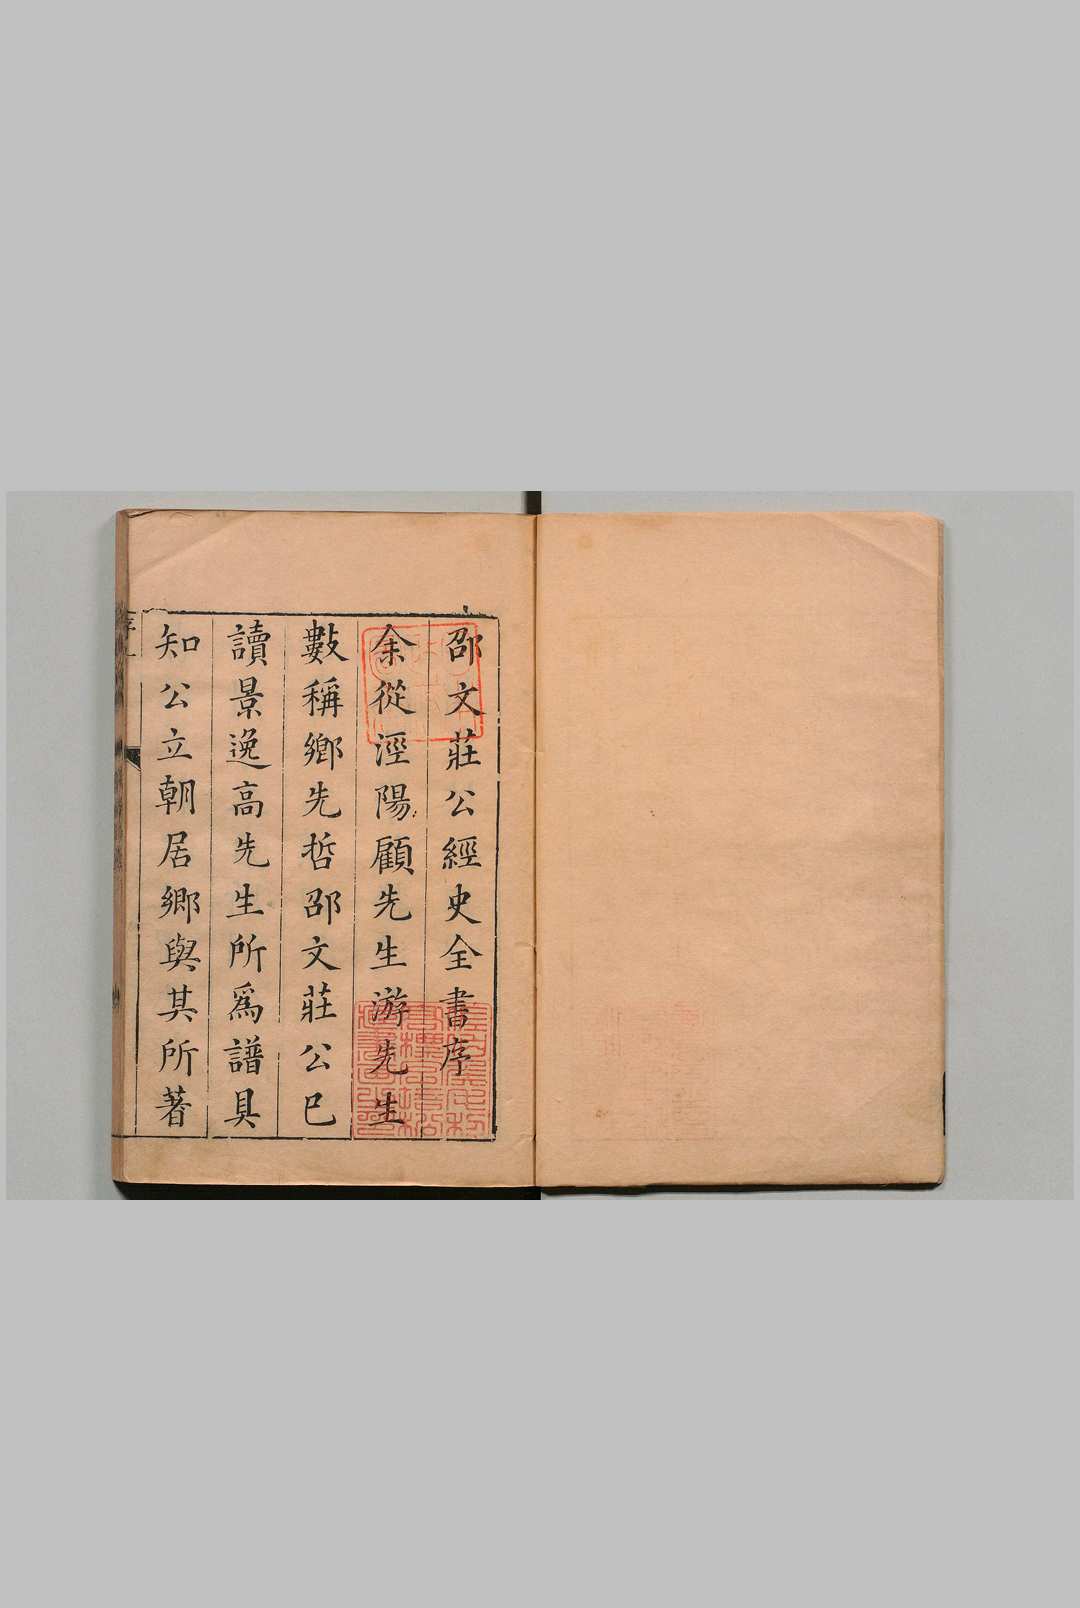 邵文莊公經史全書序
余從涇陽顧先生游先生
數稱鄉先哲邵文莊公已
讀景逸高先生所為譜具
知公立朝居鄉與其所著